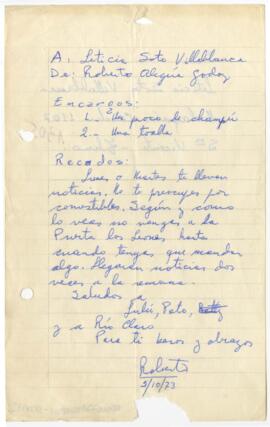 A: Leticia Soto Villablanca
De: Roberto Alegria Godoy
Encargos:
1.- Un poco de champú
2.- Una toalla
Recados:
Lunes o Martes te llevan
noticias. No te preocupes por
comestibles. Según y como
lo veas no vengas a la
Puerta los Leones, hasta
cuando tengas que mandar
algo. Llegarán noticias dos
veces a la semana.
Saludos a
Luluí, Pato,
y a Río Claro
Para ti besos y abrazos
Roberto
5/10/73